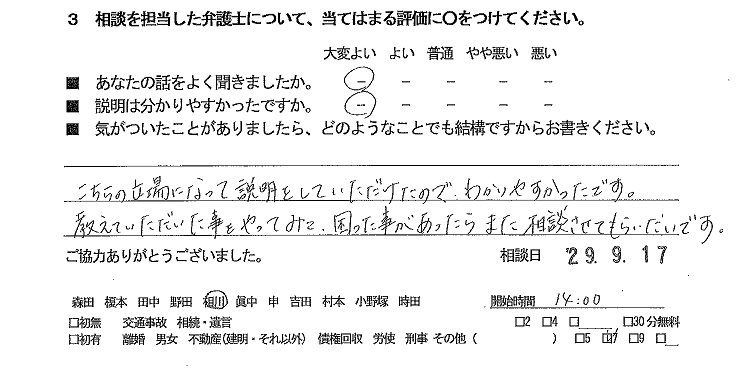 3 相談を担当した弁護士について、当てはまる評価に〇をつけてください。
大変よい よい 普通 やや悪い 悪い
■ あなたの話をよく聞きましたか。 － － － － －
■ 説明は分かりやすかったですか。 － － － － －
■ 気がついたことがありましたら、どのようなことでも結構ですからお書きください。
こちらの立場になって説明をしていただけたので、わかりやすかったです。
教えていただいた事をやってみて、困った事があったらまた相談させてもらいたいです。
ご協力ありがとうございました。 相談日 29. 9. 17
森田 榎本 田中 野田 相川 眞中 申 吉田 村本 小野塚 時田 開始時間 14:00
□初無 交通事故 相続・遺言 □2 □4 □ □30分無料
□初有 離婚 男女 不動産(建明・それ以外) 債権回収 労使 刑事 その他 ( ) □5 □7 □9 □